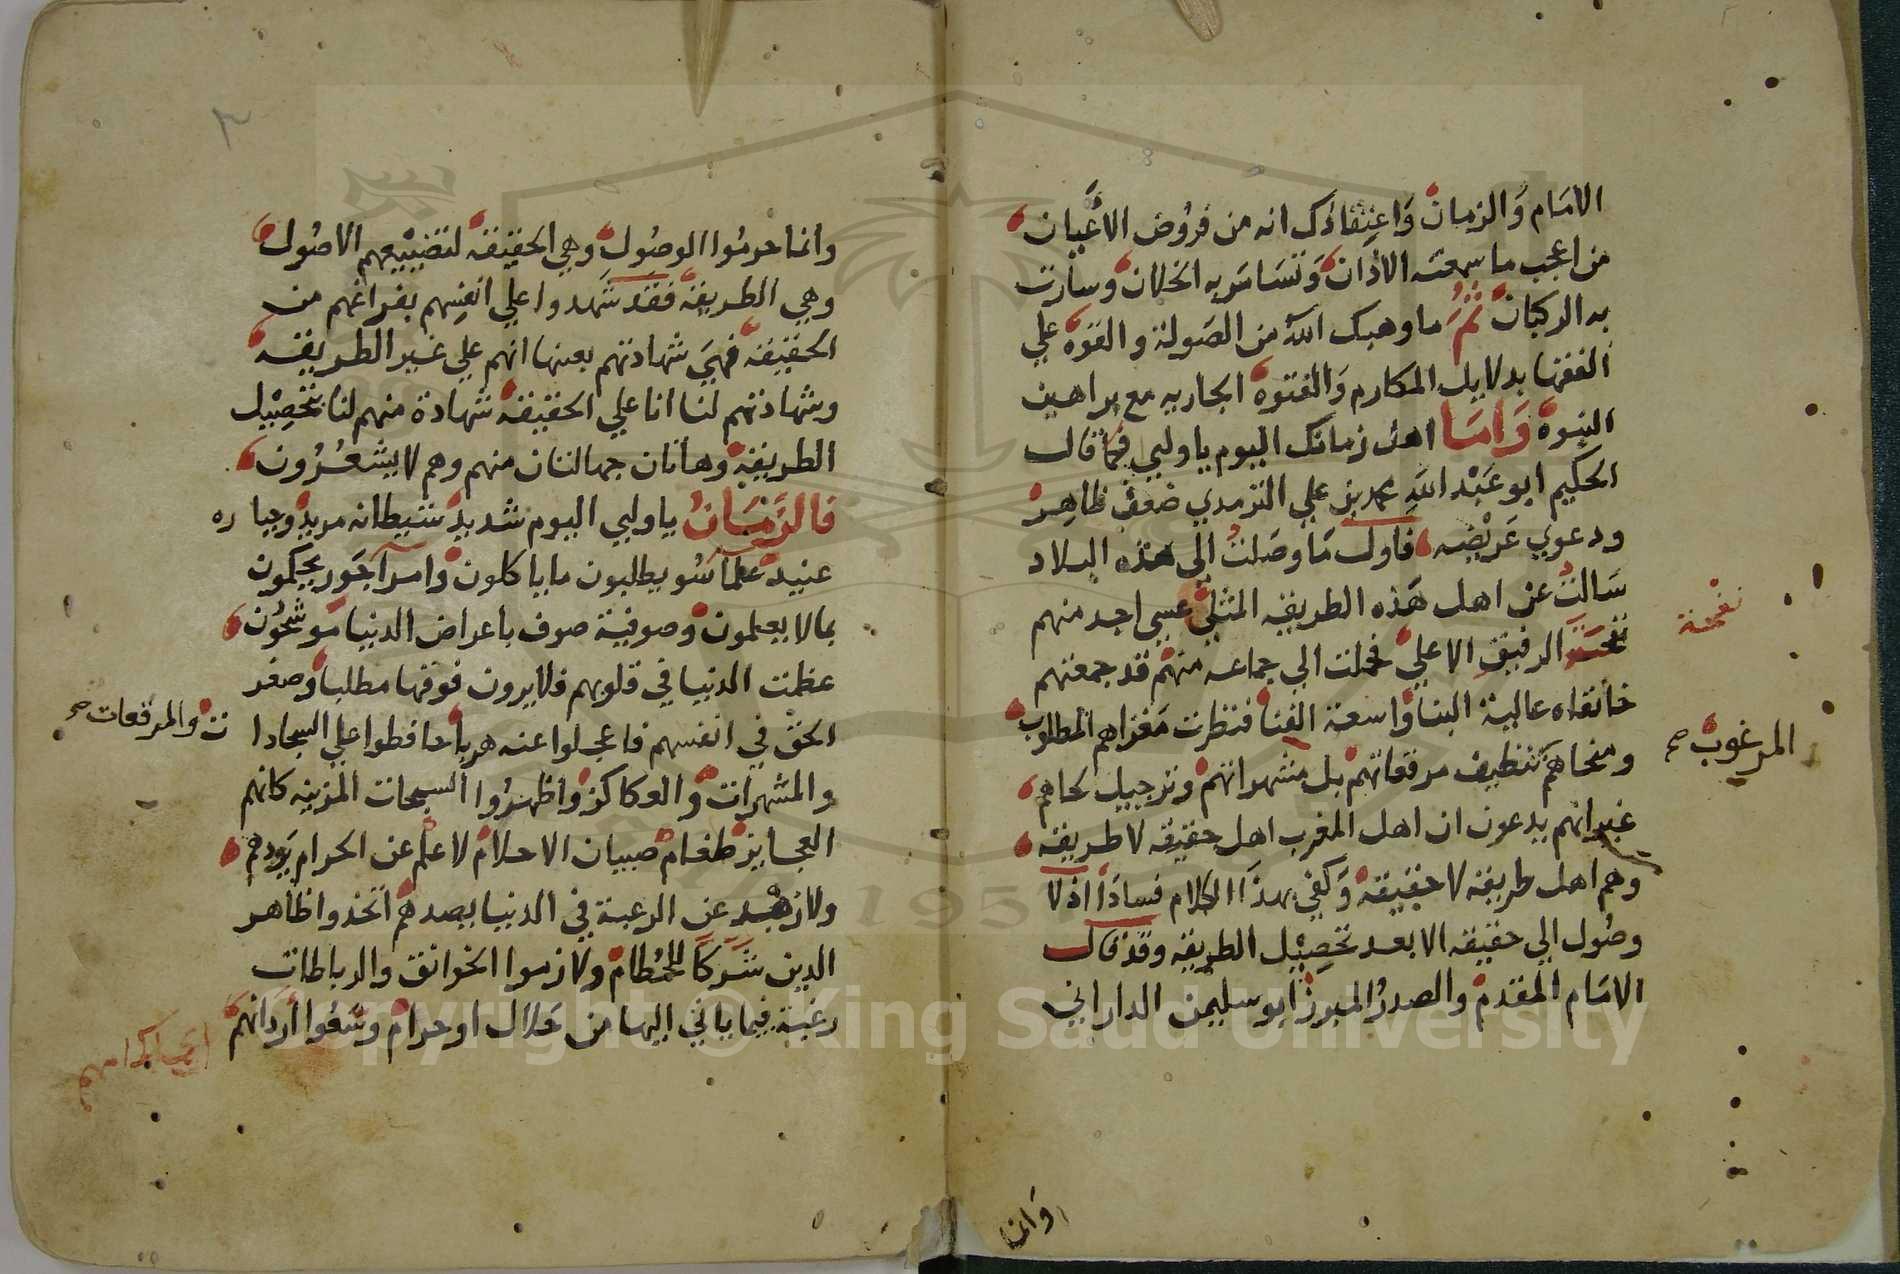 الامام والزمان واعتقادك انه من فروض الاعيان
من اعجب ما سمعته الاذان وتسامر به الخلان وسارت
به الركبان ثم ما وهبك الله من الصولة والقوة علي
الفقها بدلايل المكارم والفتوة الجاريه مع براهين
النبوة واما اهل زمانك اليوم يا وليي فكما قال
الحكيم ابو عبد الله محمد بن علي الترمذي ضعف ظاهر
ودعوي عريضه فاول ما وصلت الي هذه البلاد
سالت عن اهل هذه الطريقه المثلي عسي اجد منهم
نفحة الرفيق الاعلي فحملت الي جماعه منهم قد جمعتهم
خانقاه عالية البنا واسعة الفنا فنظرت مغزاهم المطلوب
ومنحاهم تنظيف مرقعاتهم بل مشهراتهم وترجيل لحاهم
غير انهم يدعون ان اهل المغرب اهل حقيقه لا طريقه
وهم اهل طريقه لا حقيقة وكفي بهذا الكلام فسادا اذ لا
وصول الي حقيقه الا بعد تحصيل الطريقه وقد قال
الامام المقدم والصدر المبرز ابو سليمن الداراني
نفحة
المرغوب صح
وانما
وانما حرموا الوصول وهي الحقيقة لتضييعهم الاصول
وهي الطريقة فقد شهدوا علي انفسهم بفراغهم من
الحقيقه فهي شهادتهم بعينها انهم علي غير الطريقه
وشهادتهم لنا انا علي الحقيقة شهادة منهم لنا بتحصيل
الطريقه وهاتان جهالتان منهم وهم لا يشعرون
فالزمان يا وليي اليوم شديد شيطانه مريد وجباره
عنيد علما سو يطلبون ما ياكلون وامرا جور يحكمون
بما لا يعلمون وصوفية صوف باعراض الدنيا موشحون
عظمت الدنيا في قلوبهم فلا يرون فوقها مطلبا وصغر
الحق في انفسهم فاعجلوا عنه هربا حافظوا علي السجادات والمرقعات صح
والمشهرات والعكاكز واظهروا السبحات المزينه كانهم
العجايز طغام صبيان الاحلام لا علم عن الحرام يردهم
ولا زهد عن الرغبة في الدنيا يصدهم اتخذوا ظاهر
الدين شركا للحطام ولازموا الخوانق والرباطات
رغبة فيما ياتي اليها من حلال او حرام وسعوا اردانهم
Copyright © King Saud University
195